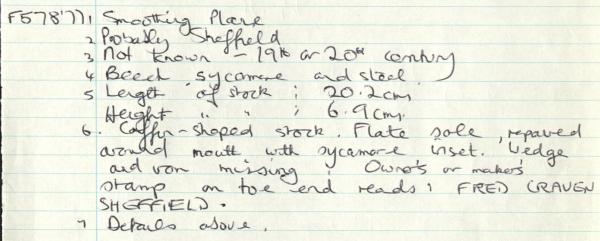 F578'77 1 Smoothing Plane
2 Probably Sheffield
3 Not known - 19th or 20th century
4 Beech sycamore and steel.
5 Length of stock : 20.2cm
Height " " : 6.9cm.
6. Coffin-shaped stock. Flate sole, repaired
around mouth with sycamore inset. Wedge
and iron missing. Owner's or maker's
stamp on toe end reads : FRED CRAVEN
SHEFFIELD.
7 Details above.